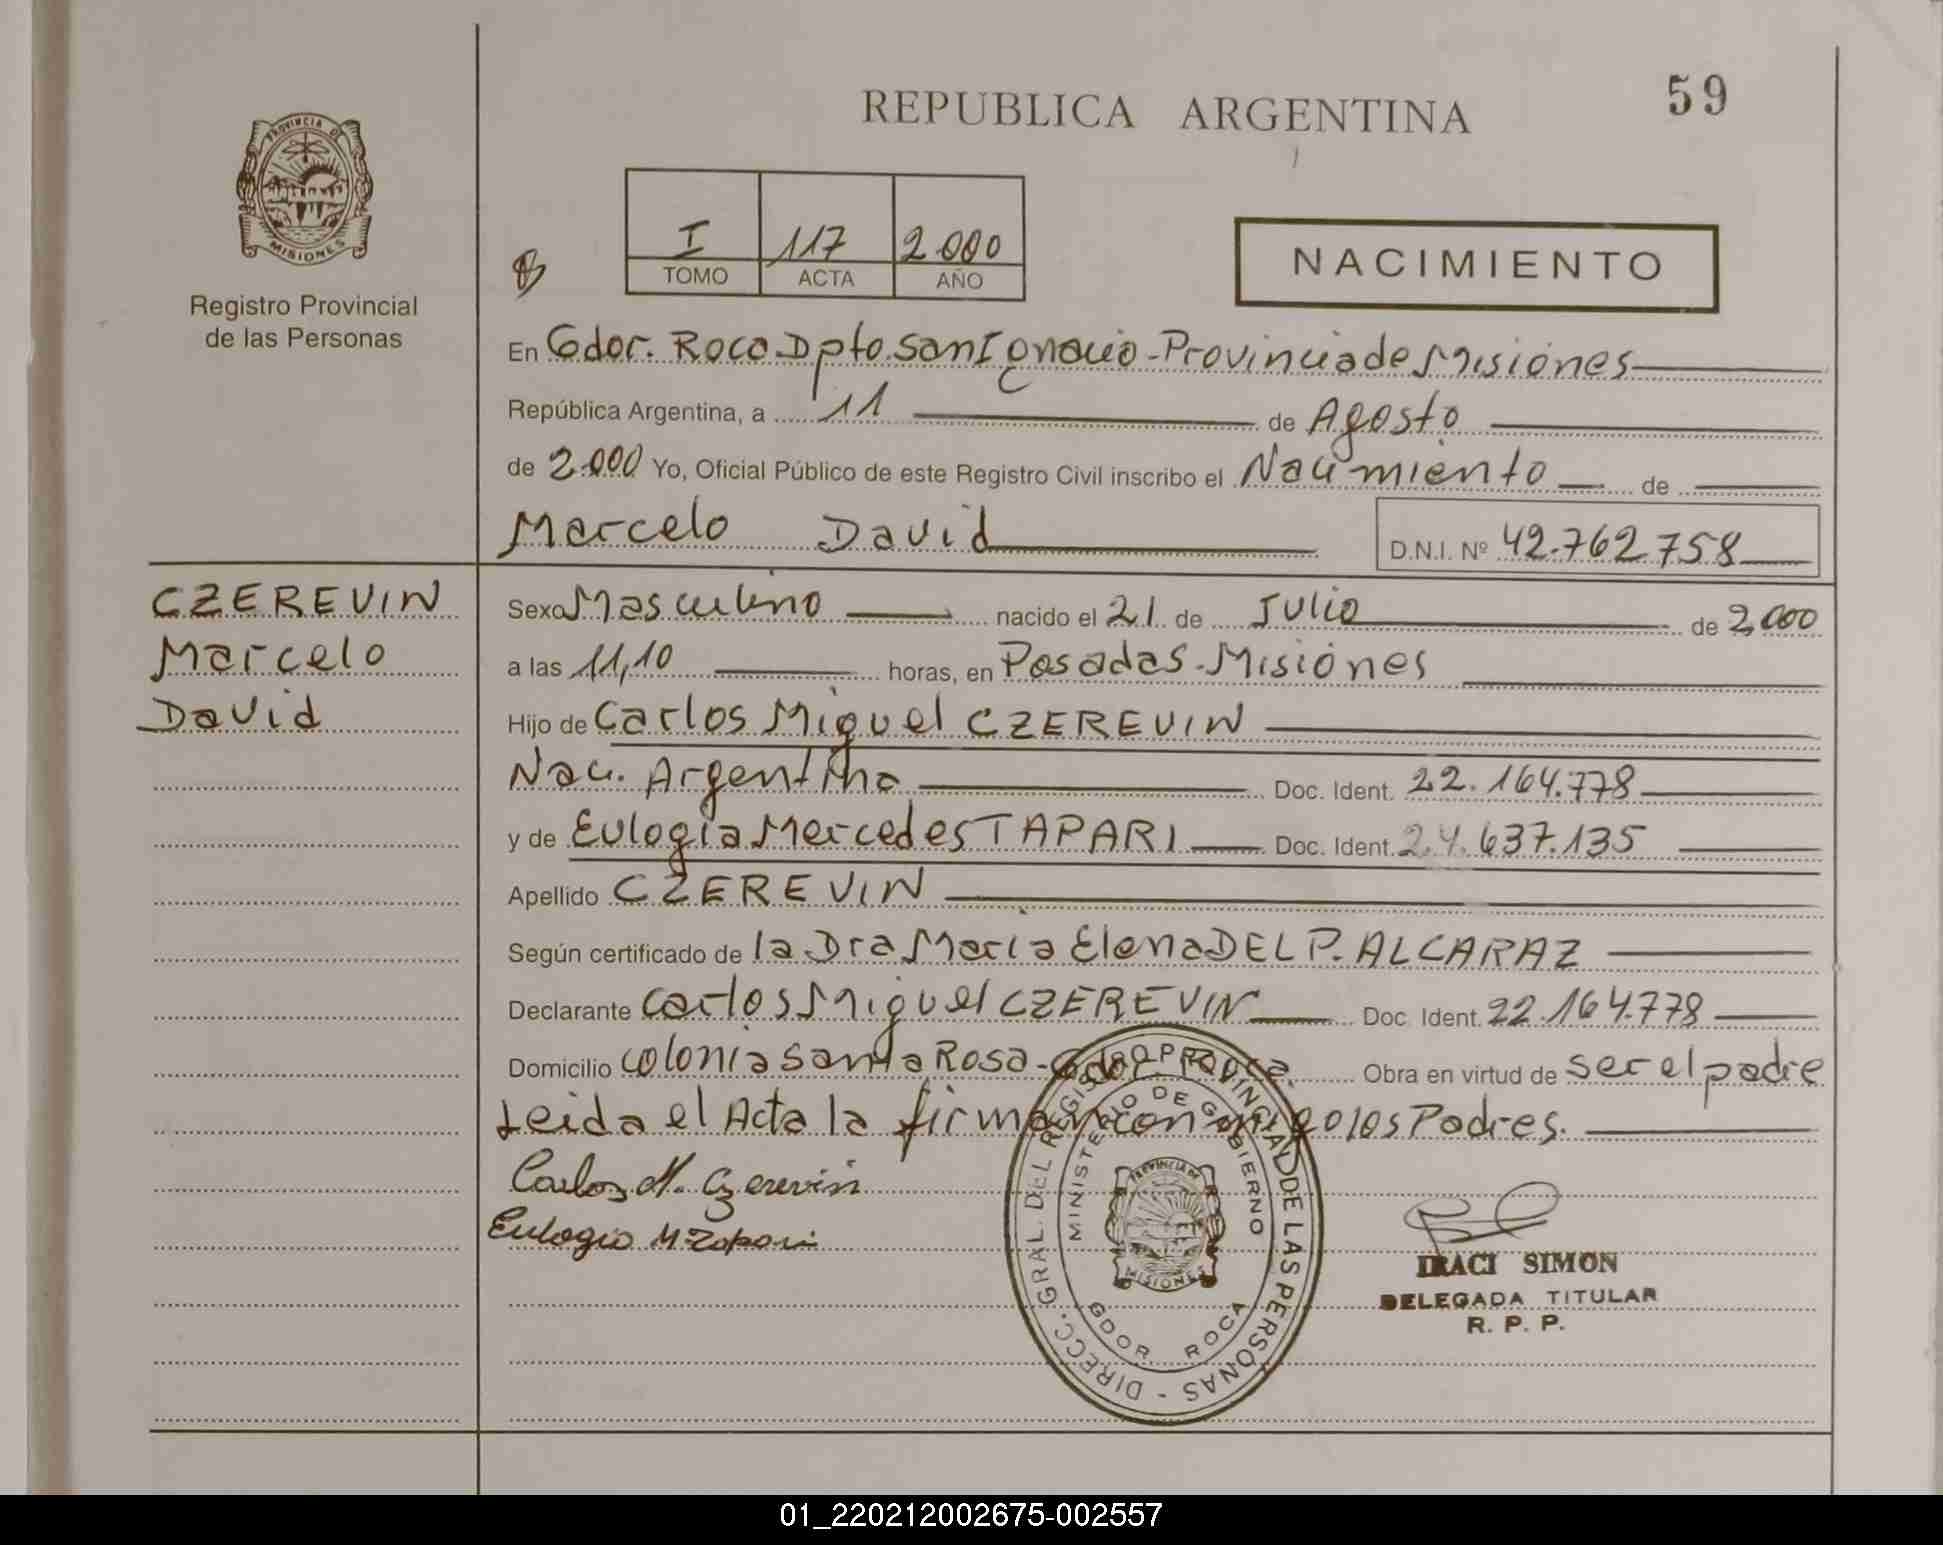 REPUBLICA ARGENTINA
59
PROVINCIA DE
MISIONES
Registro Provincial
de las Personas
I 117 2.000
TOMO ACTA AÑO
NACIMIENTO
En Gdor. Roca Dpto. San Ignacio - Provincia de Misiones
República Argentina, a 11 de Agosto
de 2.000 Yo, Oficial Público de este Registro Civil inscribo el Nacimiento de
Marcelo David
D.N.I. Nº 42.762.758
CZEREVIN
Marcelo
David
Sexo Masculino nacido el 21 de Julio de 2.000
a las 11,10 horas, en Posadas - Misiones
Hijo de Carlos Miguel CZEREVIN
Nac. Argentina Doc. Ident. 22.164.778
y de Eulogia Mercedes TAPARI Doc. Ident. 24.637.135
Apellido CZEREVIN
Según certificado de la Dra Maria Elena DEL P. ALCARAZ
Declarante Carlos Miguel CZEREVIN Doc. Ident. 22.164.778
Domicilio Colonia Santa Rosa - Gdor. Roca. Obra en virtud de ser el padre
Leida el Acta la firman conmigo los Padres.
Carlos M. Czerevin
Eulogia M Tapari
DIRECC. GRAL. DEL REGISTRO PROVINCIAL DE LAS PERSONAS -
MINISTERIO DE GOBIERNO
PROVINCIA DE
MISIONES
GDOR. ROCA
IRACI SIMON
DELEGADA TITULAR
R. P. P.
01_220212002675-002557